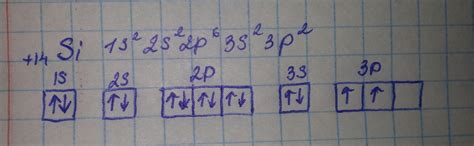 +14 Si 1s² 2s² 2p⁶ 3s² 3p²
1s 2s 2p 3s 3p
↑↓ ↑↓ ↑↓ ↑↓ ↑↓ ↑↓ ↑ ↑